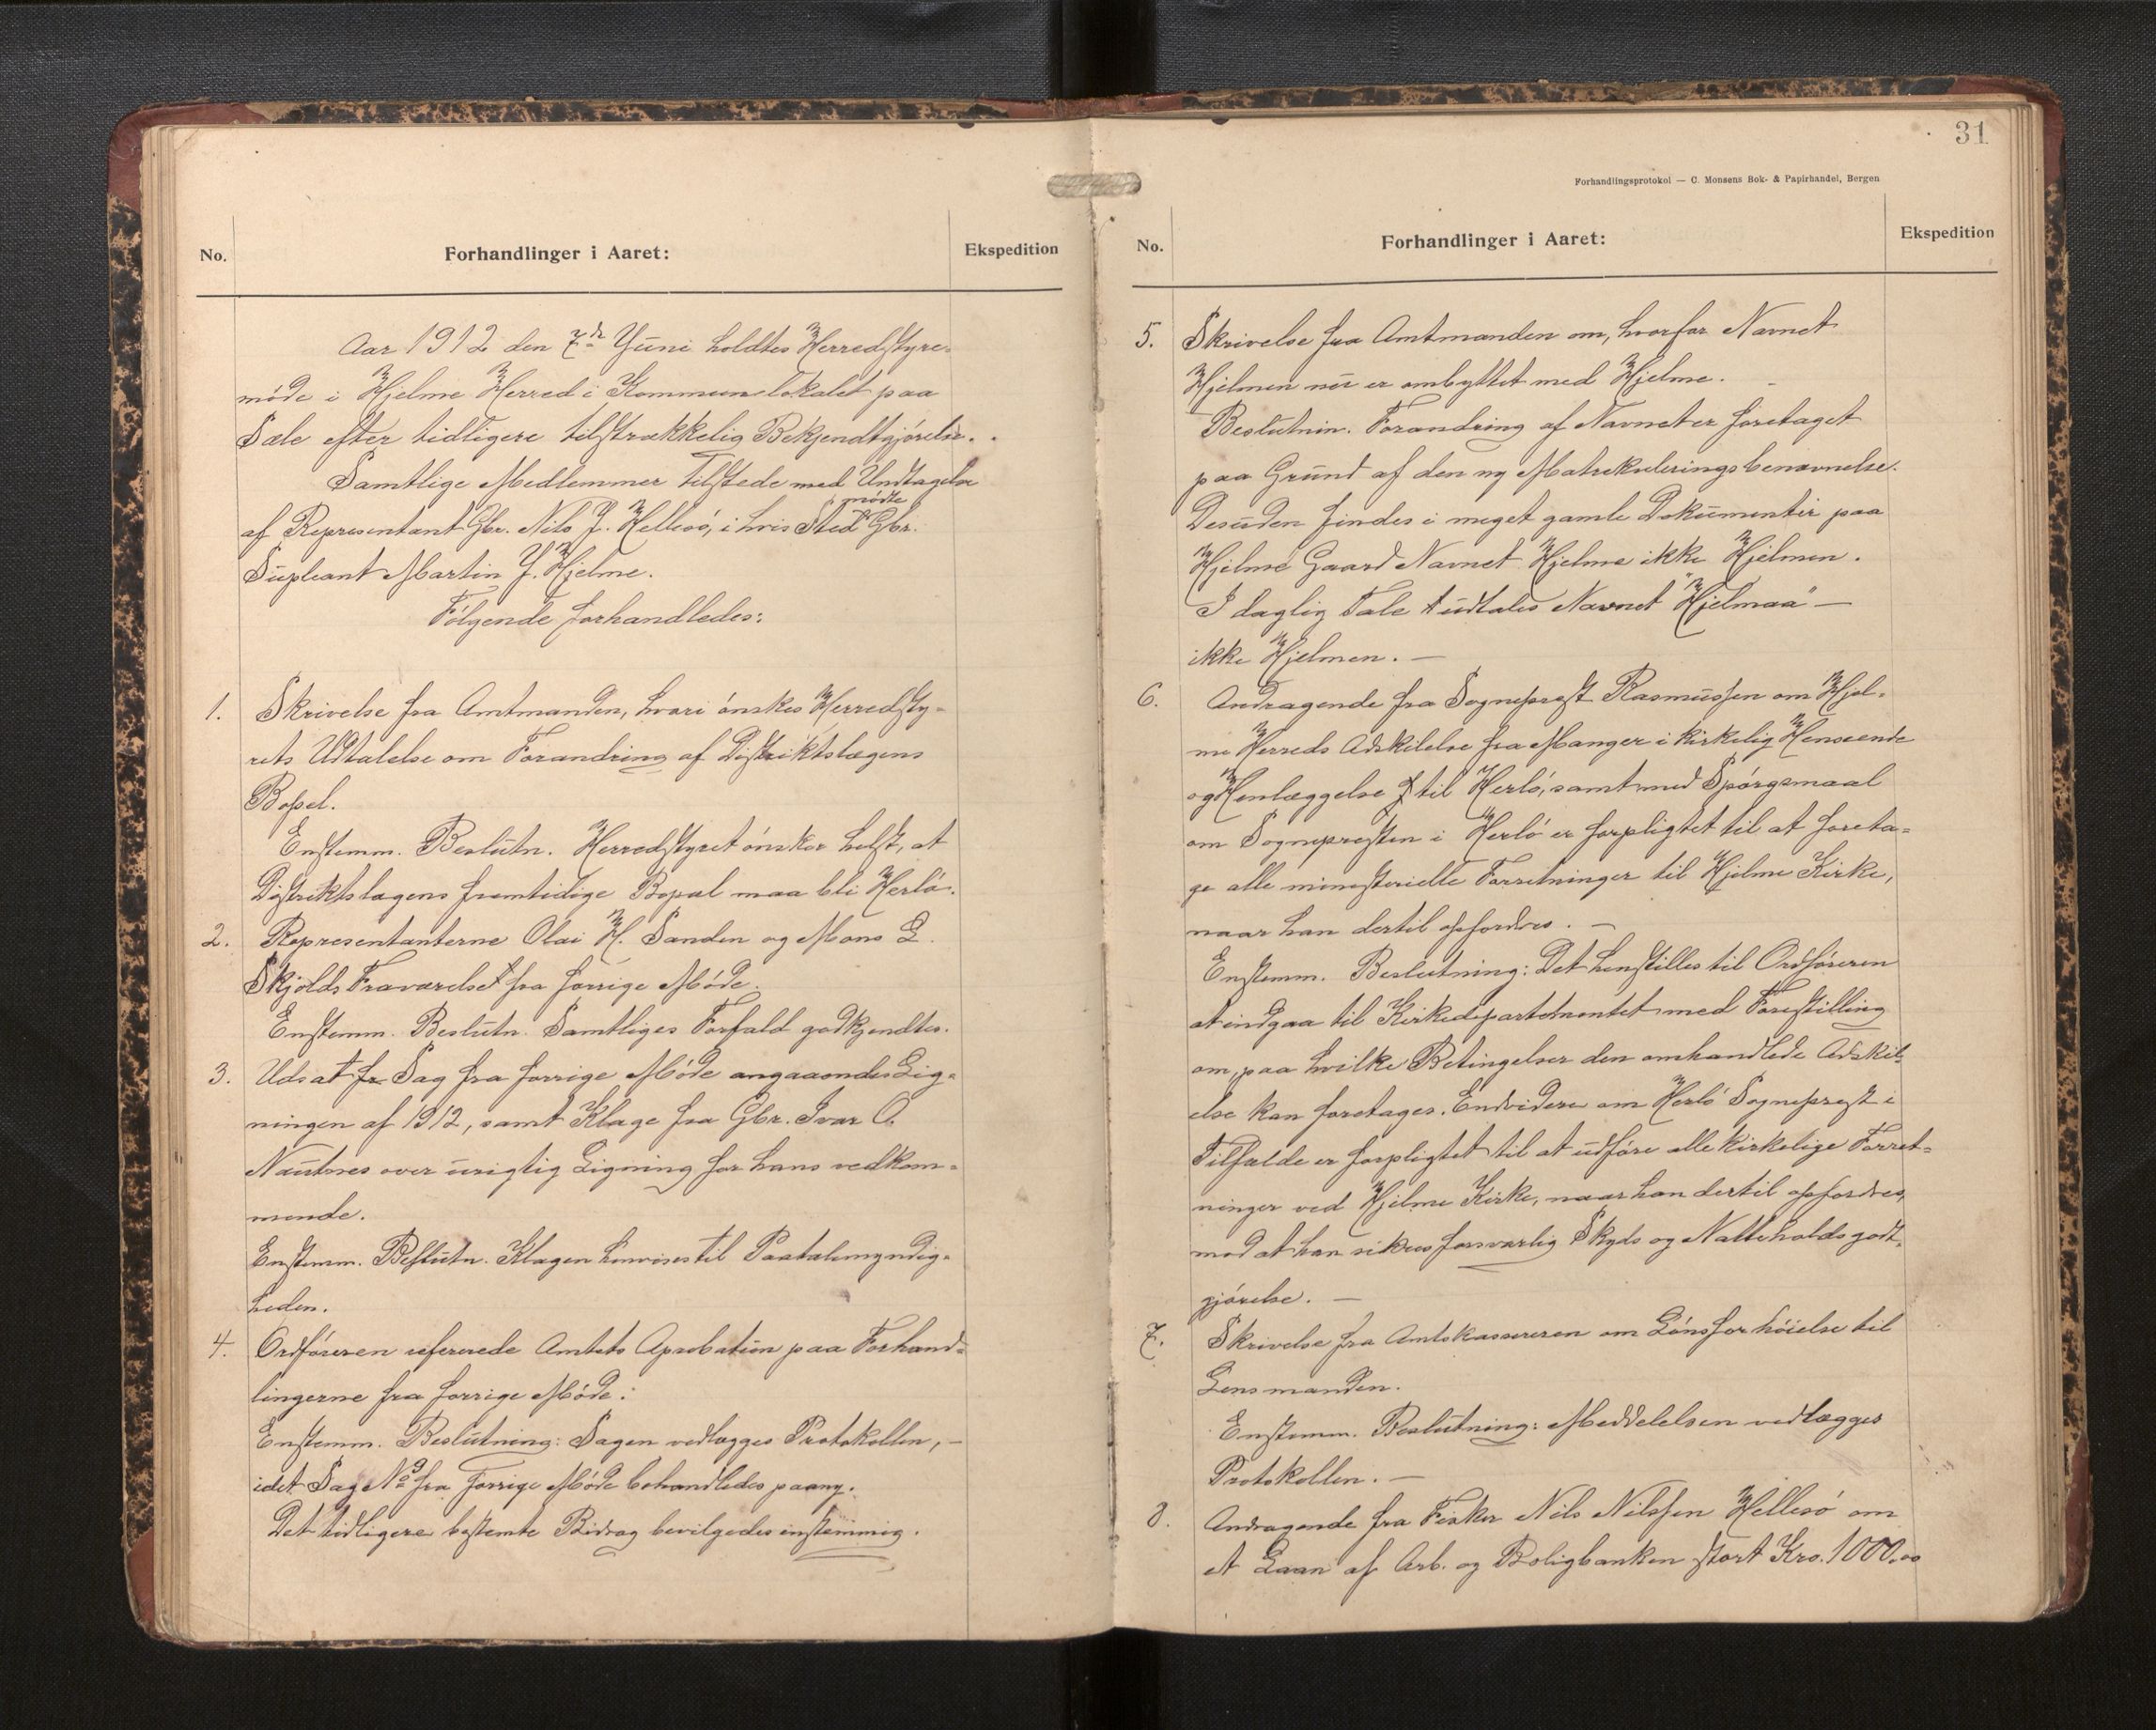 No.
Forhandlinger i Aaret:
Ekspedition
Aar 1912 den 7de Juni holdtes Herredstyre-
møde i Hjelme Herred i Kommunelokalet paa
Sæle efter tidligere tilstrækkelig Bekjendtgjørelse.
Samtlige Medlemmer tilstede med Undtagelse
af Representant Gbr. Nils J. Hellesø, i hvis Sted mødte Gbr.
Supleant Martin J. Hjelme.
Følgende forhandledes:
1. Skrivelse fra Amtmanden, hvori ønskes Herredsty-
rets Udtalelse om Forandring af Distriktslægens
Bopel.
Enstemm. Beslutn. Herredstyret ønsker helst, at
Distriktslægens fremtidige Bopæl maa bli Herlø.
2. Representanterne Olai H. Sanden og Mons L.
Skjolds Fraværelse fra forrige Møde.
Enstemm. Beslutn. Samtliges Forfald godkjendtes.
3. Udsat fr Sag fra forrige Møde angaaendes Lig-
ningen af 1912, samt Klage fra Gbr. Ivar O.
Nautnes over urigtig Ligning for hans vedkom-
mende.
Enstemm. Beslutn. Klagen henvises til Paatalemyndig-
heden.
4. Ordføreren refererede Amtets Aprobation paa Forhand-
lingerne fra forrige Møde:
Enstemm. Beslutning: Sagen vedlægges Protokollen, —
idet Sag No 9 fra forrige Møde behandledes paany.
Det tidligere bestemte Bidrag bevilgedes enstemmig.
31
Forhandlingsprotokol — C. Monsens Bok- & Papirhandel, Bergen
No.
Forhandlinger i Aaret:
Ekspedition
5. Skrivelse fra Amtmanden om, hvorfor Navnet
Hjelmen nu er ombyttet med Hjelme.
Beslutnin. Forandring af Navnet er foretaget
paa Grund af den ny Matrekuleringsbenævnelse.
Desuden findes i meget gamle Dokumenter paa
Hjelme Gaard Navnet Hjelme ikke Hjelmen.
I daglig Tale udtales Navnet "Hjelmaa" —
ikke Hjelmen. —
6. Andragende fra Sogneprest Rasmussen om Hjel-
me Herreds Adskilelse fra Manger i kirkelig Henseende
og Henlæggelse til Herlø, samt med Spørgsmaal
om Sognepresten i Herlø er forpligtet til at foreta-
ge alle ministerielle Forretninger til Hjelme Kirke,
naar han dertil opfordres. —
Enstemm. Beslutning: Det henstilles til Ordføreren
at indgaa til Kirkedepartementet med Forestilling
om, paa hvilke Betingelser den omhandlede Adskil-
else kan foretages. Endvidere om Herlø Sogneprest i
Tilfælde er forpligtet til at udføre alle kirkelige Forret-
ninger ved Hjelme Kirke, naar han dertil opfordres,
mod at han sikres forsvarlig Skyds og Natteholdsgodt-
gjørelse. —
7. Skrivelse fra Amtskassereren om Lønsforhøielse til
Lensmanden.
Enstemm. Beslutning: Meddelelsen vedlægges
Protokollen. —
8. Andragende fra Fisker Nils Nilssen Hellesø om
et Laan af Arb. og Boligbanken stort Kro. 1000.00